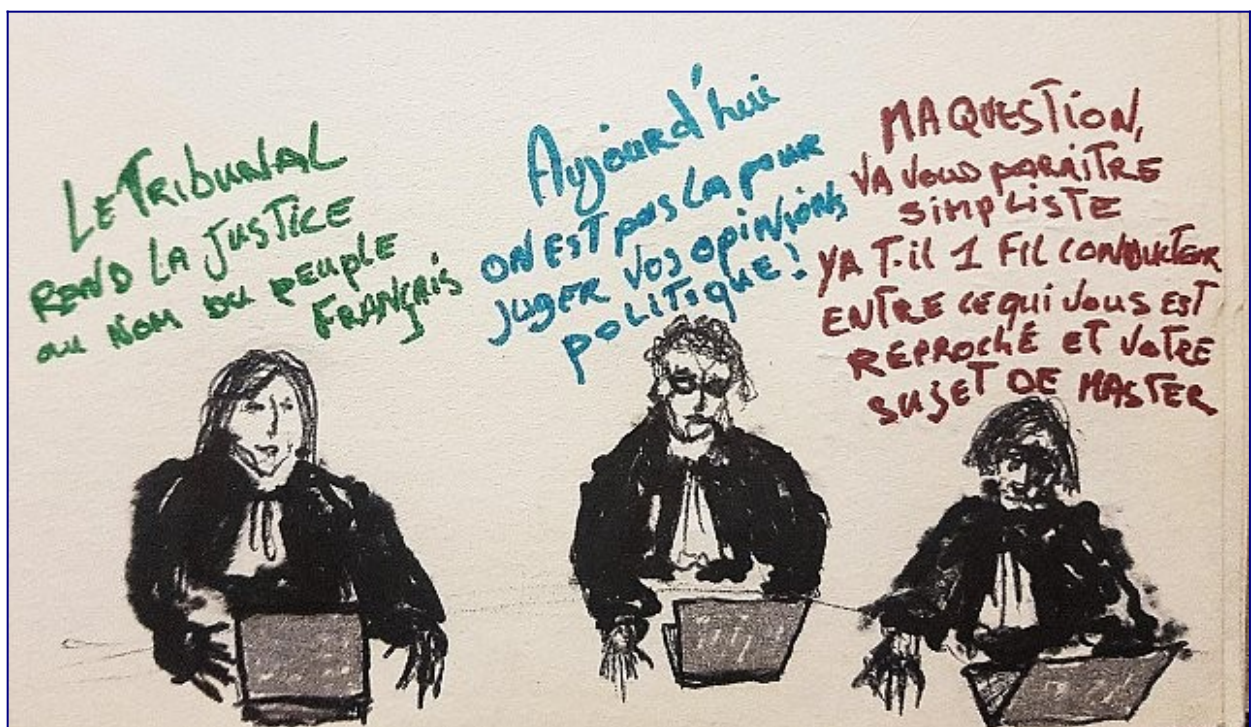 LE TRIBUNAL
REND LA JUSTICE
au NOM DU PEUPLE
FRANÇAIS
Aujourd'hui
ON EST pas LA pour
JUGER VOS OPINIONS
POLITIQUE!
MA QUESTION,
VA VOUS PARAITRE
SIMPLISTE
YA T-il 1 FIL CONDUCTEUR
ENTRE CE QUI VOUS EST
REPROCHÉ ET VOTRE
SUJET DE MASTER